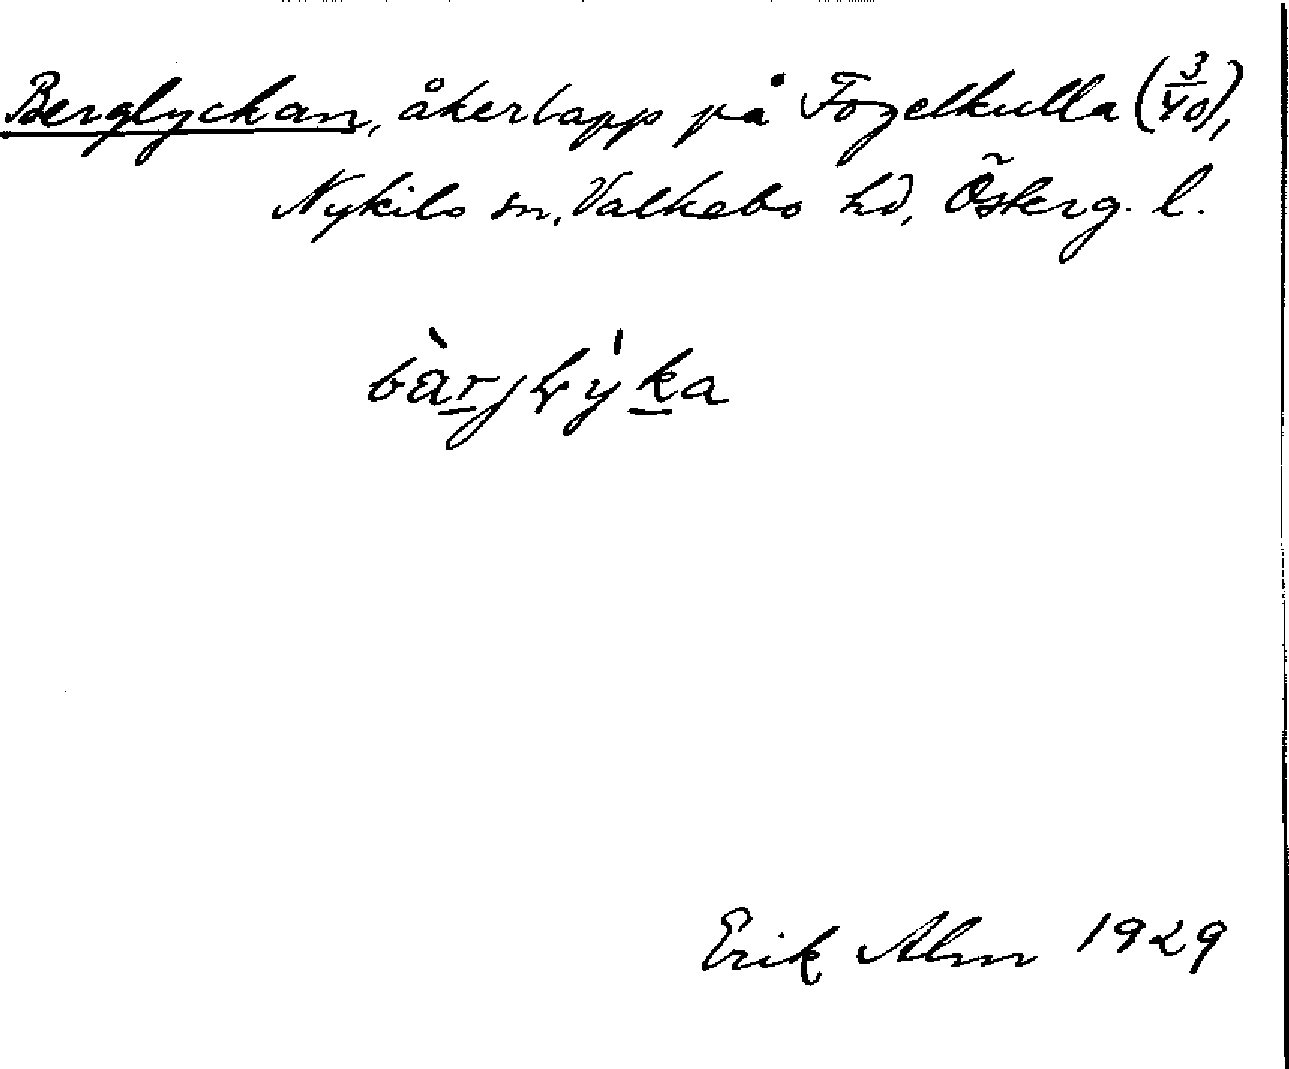 Berglyckan, åkerlapp på Fogelkulla (3/40),
Nykils sn, Valkebo hd, Österg. l.
bàrjlýka
Erik Alm 1929